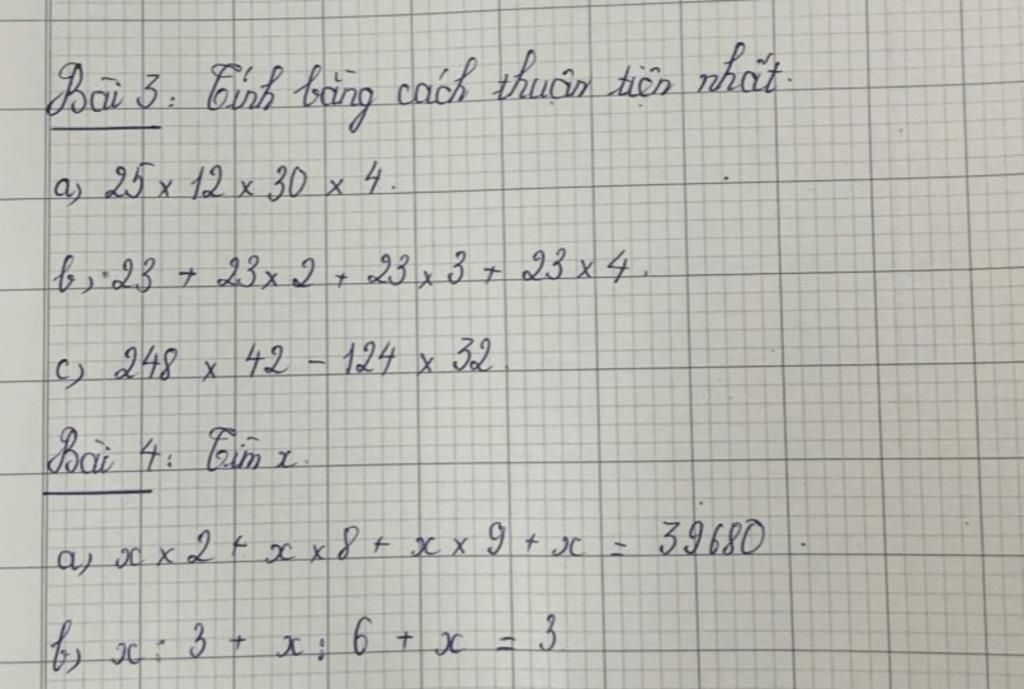 Bài 3: Tính bằng cách thuận tiện nhất.
a) 25 x 12 x 30 x 4.
b) 23 + 23 x 2 + 23 x 3 + 23 x 4.
c) 248 x 42 - 124 x 32
Bài 4: Tìm x.
a) x x 2 + x x 8 + x x 9 + x = 39680.
b) x : 3 + x : 6 + x = 3